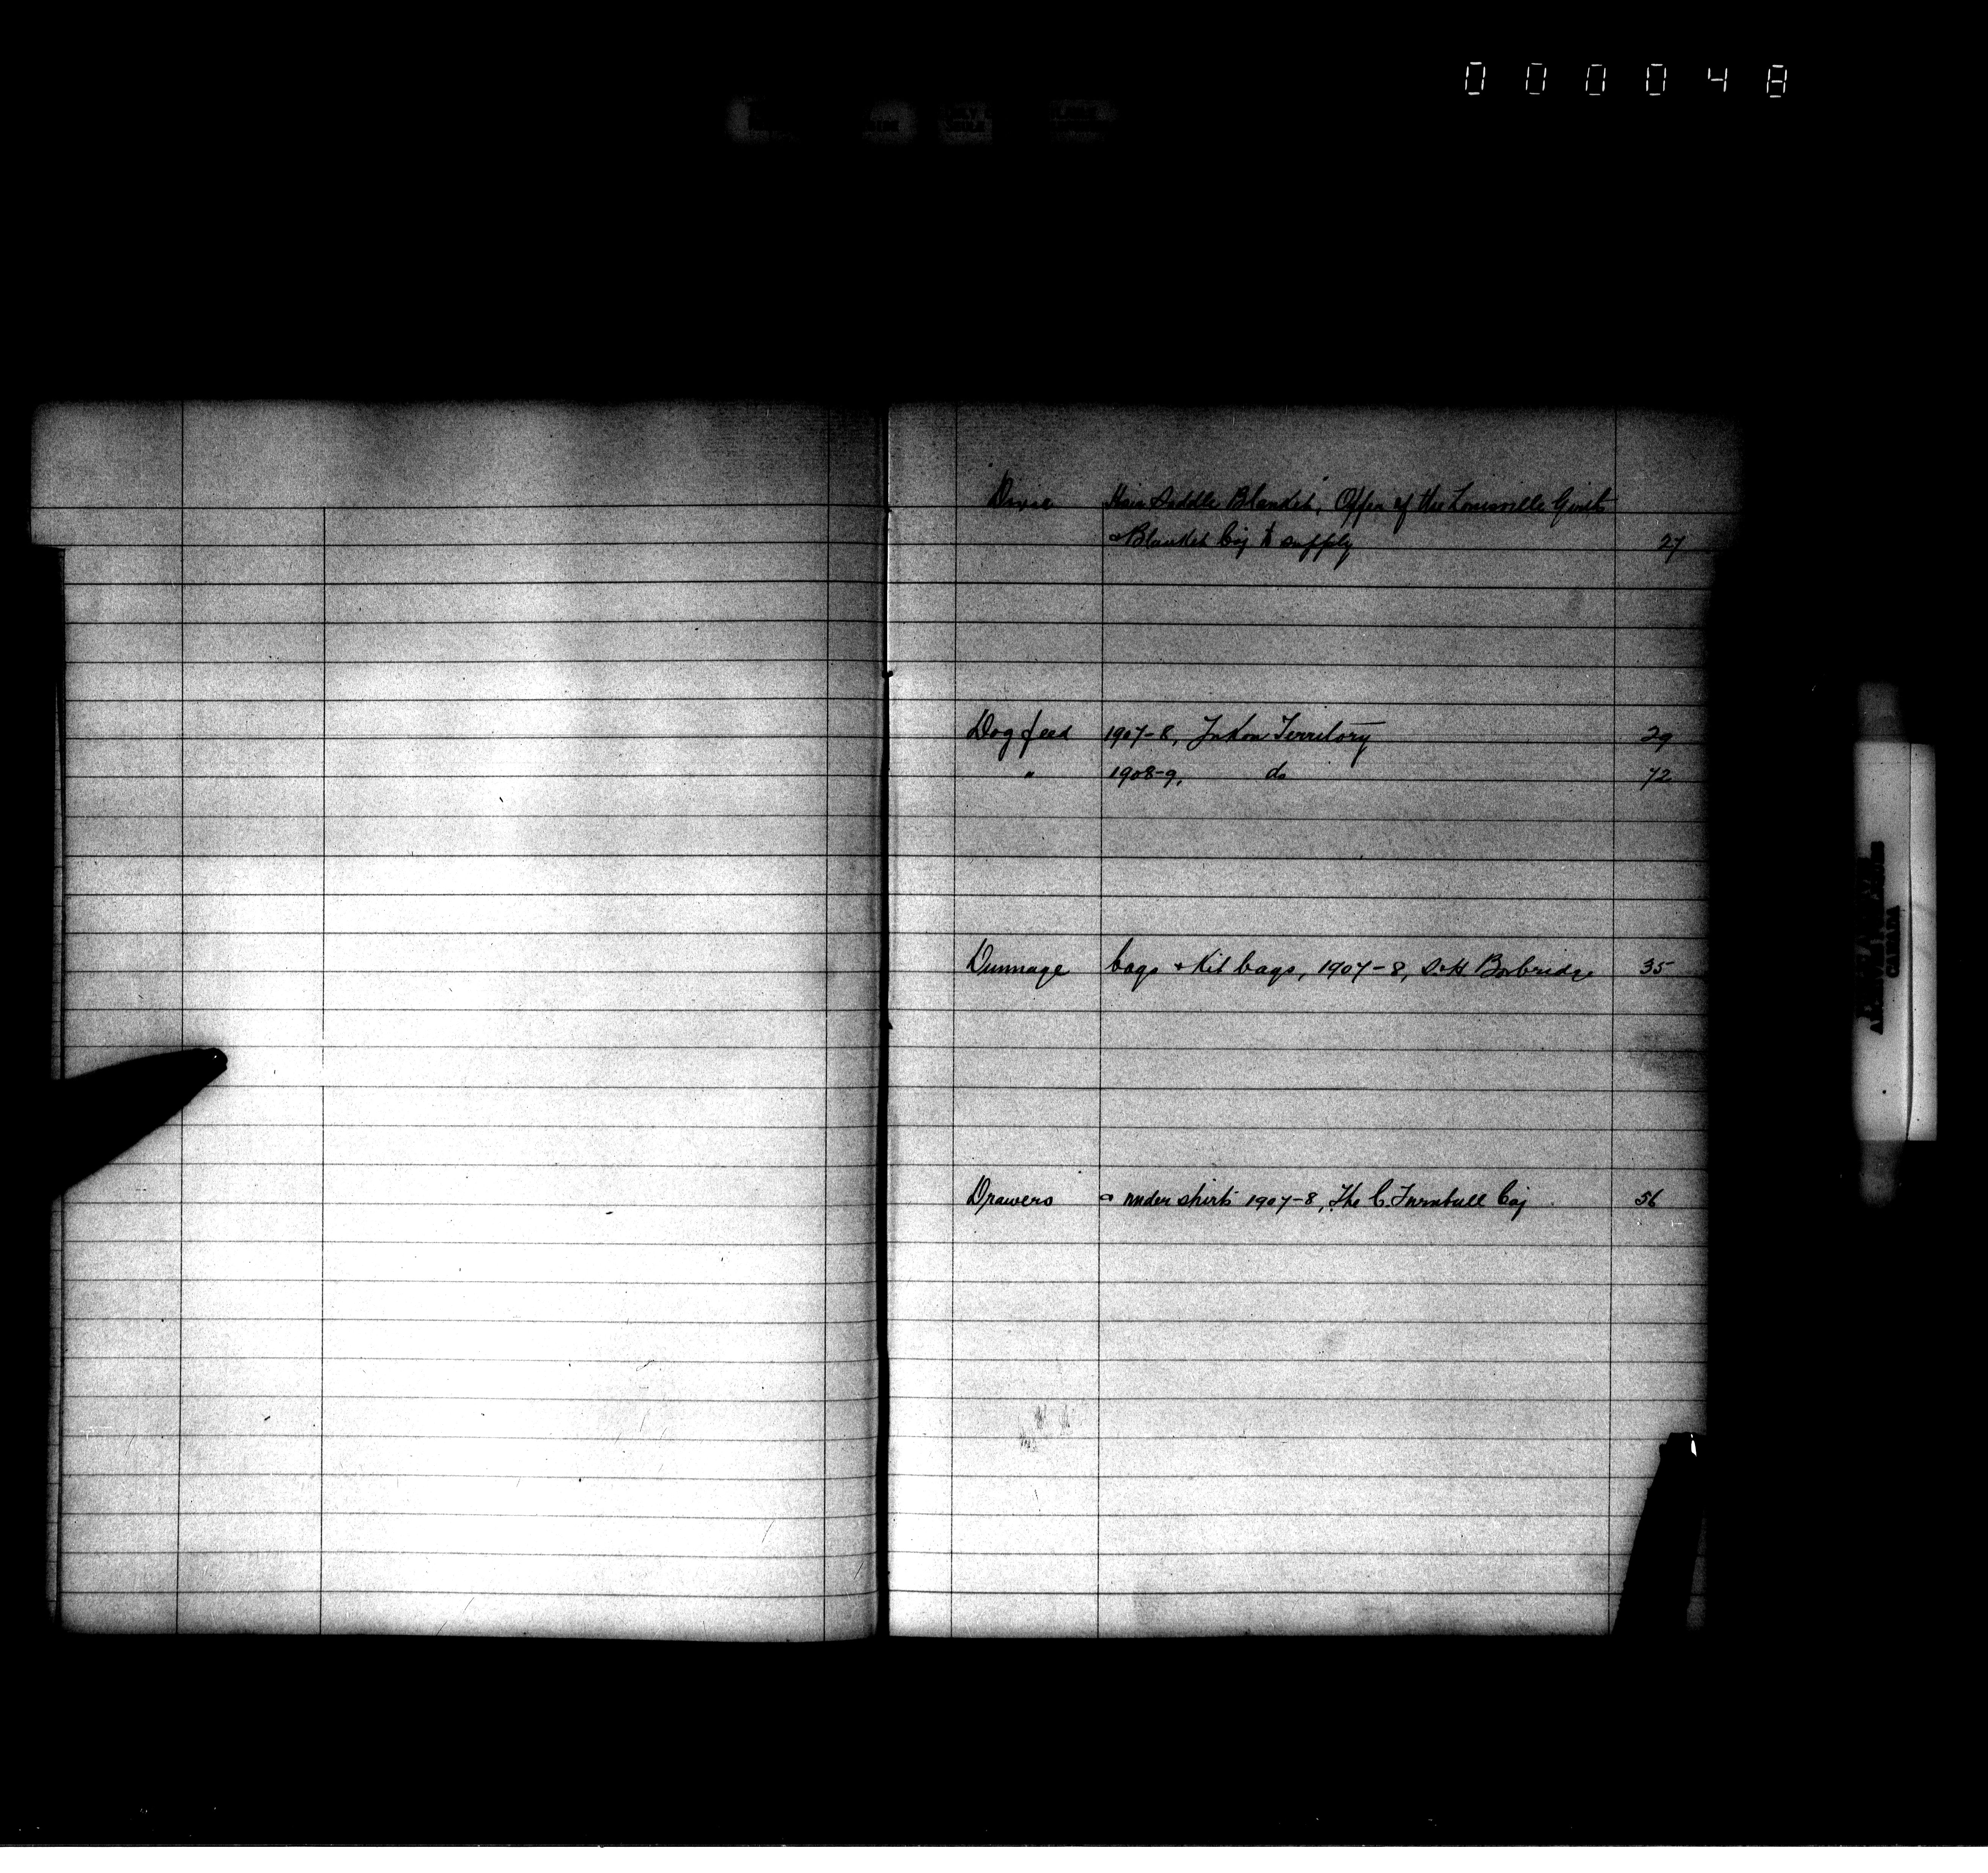 000048
Dixie Hair Saddle Blanket, Offer of the Louisville Girth
& Blanket Coy to supply 27
Dog feed 1907-8, Yukon Territory 29
" 1908-9, do 72
Dunnage bags & Kit bags, 1907-8, S & H Borbridge 35
Drawers & under shirts 1907-8, The C. Turnbull Coy 56
CANADA